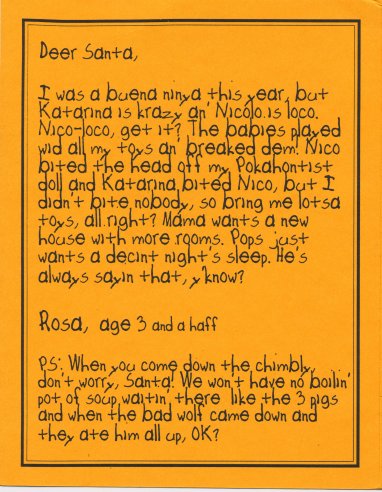 Deer Santa,
I was a buena ninya this year, but
Katarina is krazy an' Nicolo is loco.
Nico-loco, get it? The babies played
wid all my toys an' breaked dem! Nico
bited the head off my Pokahontist
doll and Katarina bited Nico, but I
didn't bite nobody, so bring me lotsa
toys, all right? Mama wants a new
house with more rooms. Pops just
wants a decint night's sleep. He's
always sayin that, y'know?
Rosa, age 3 and a haff
PS: When you come down the chimbly,
don't worry, Santa! We won't have no boilin'
pot of soup waitin' there like the 3 pigs
and when the bad wolf came down and
they ate him all up, OK?